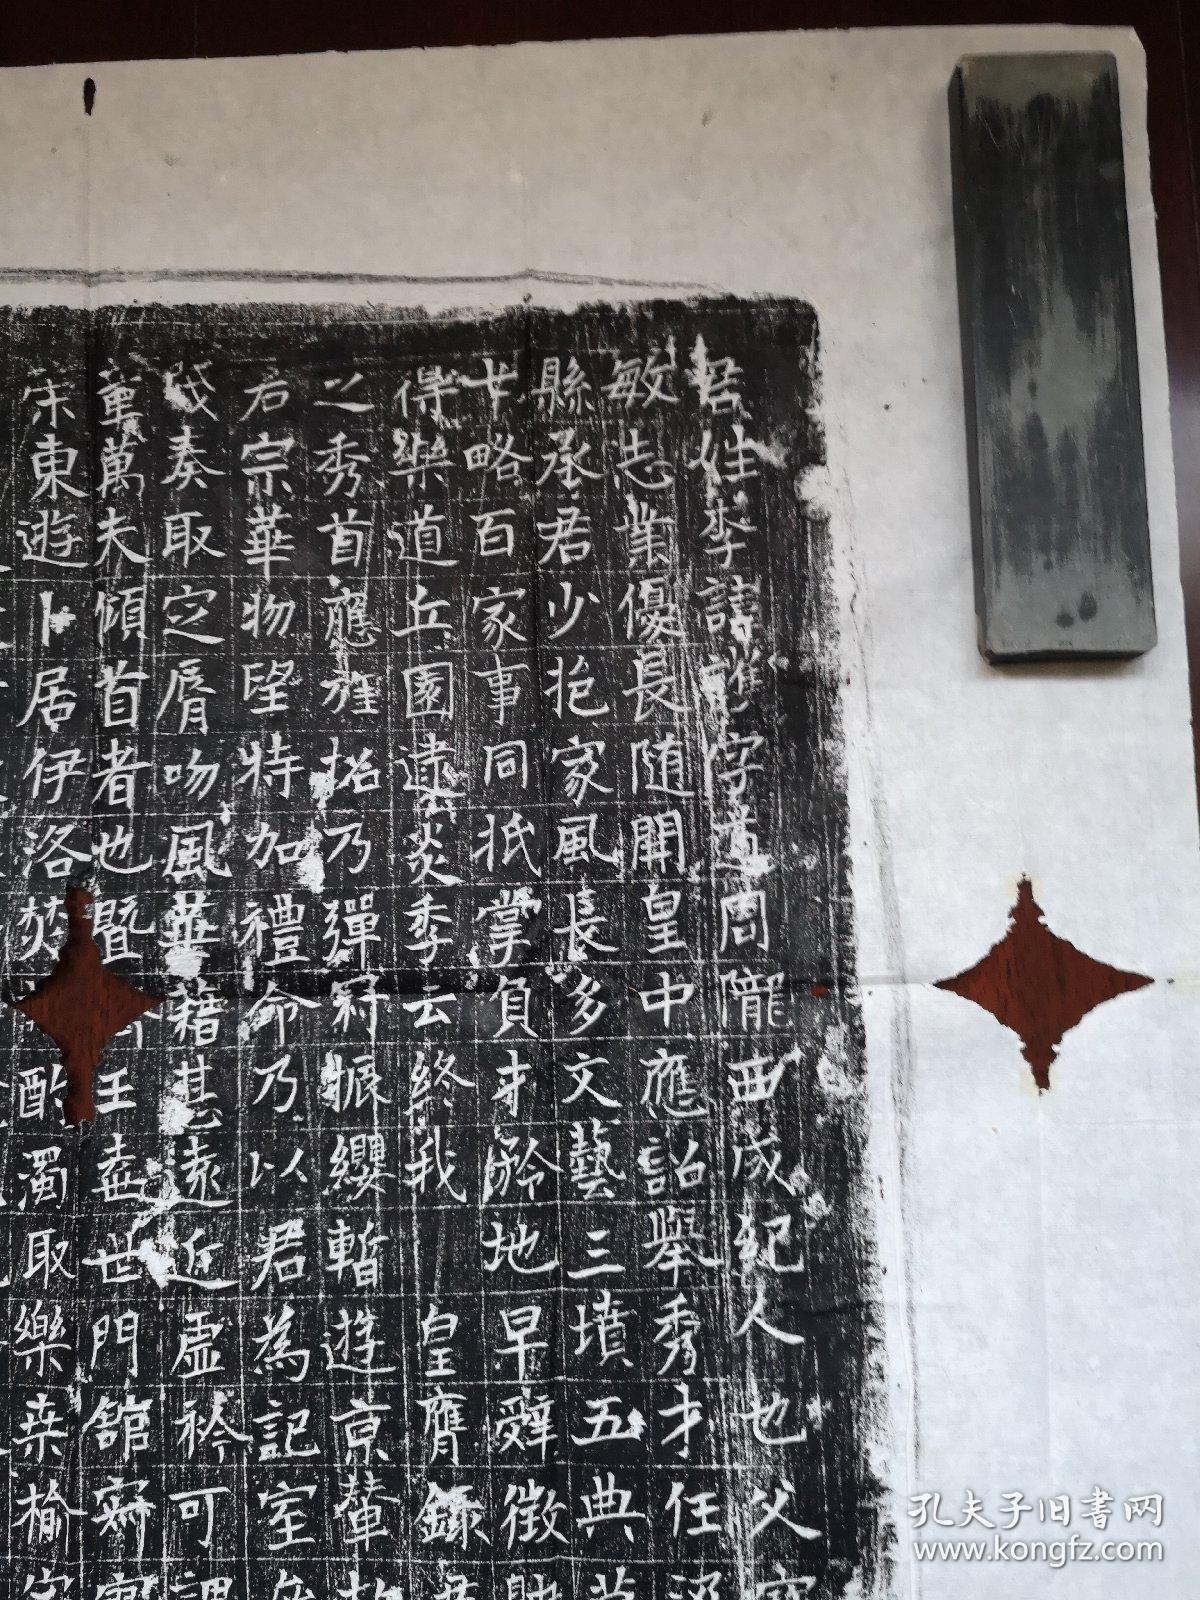 君姓李諱護字道周隴西成紀人也父
敏志業優長随開皇中應詔舉秀才任
縣丞君少抱家風長多文藝三墳五典
七略百家事同抵掌負才矜地早辟徵
得樂道丘園逮炎季云終我皇膺錄
之秀首應旌招乃彈冠振纓暫遊京輦
右宗華物望特加禮命乃以君為記室
茂奏取定脣吻風華藉甚遠近虛衿可謂
重萬夫傾首者也暨 王壺世門舘寂寥
宋東遊卜居伊洛焚 酌濁取樂桑榆
孔夫子旧書网
www.kongfz.com